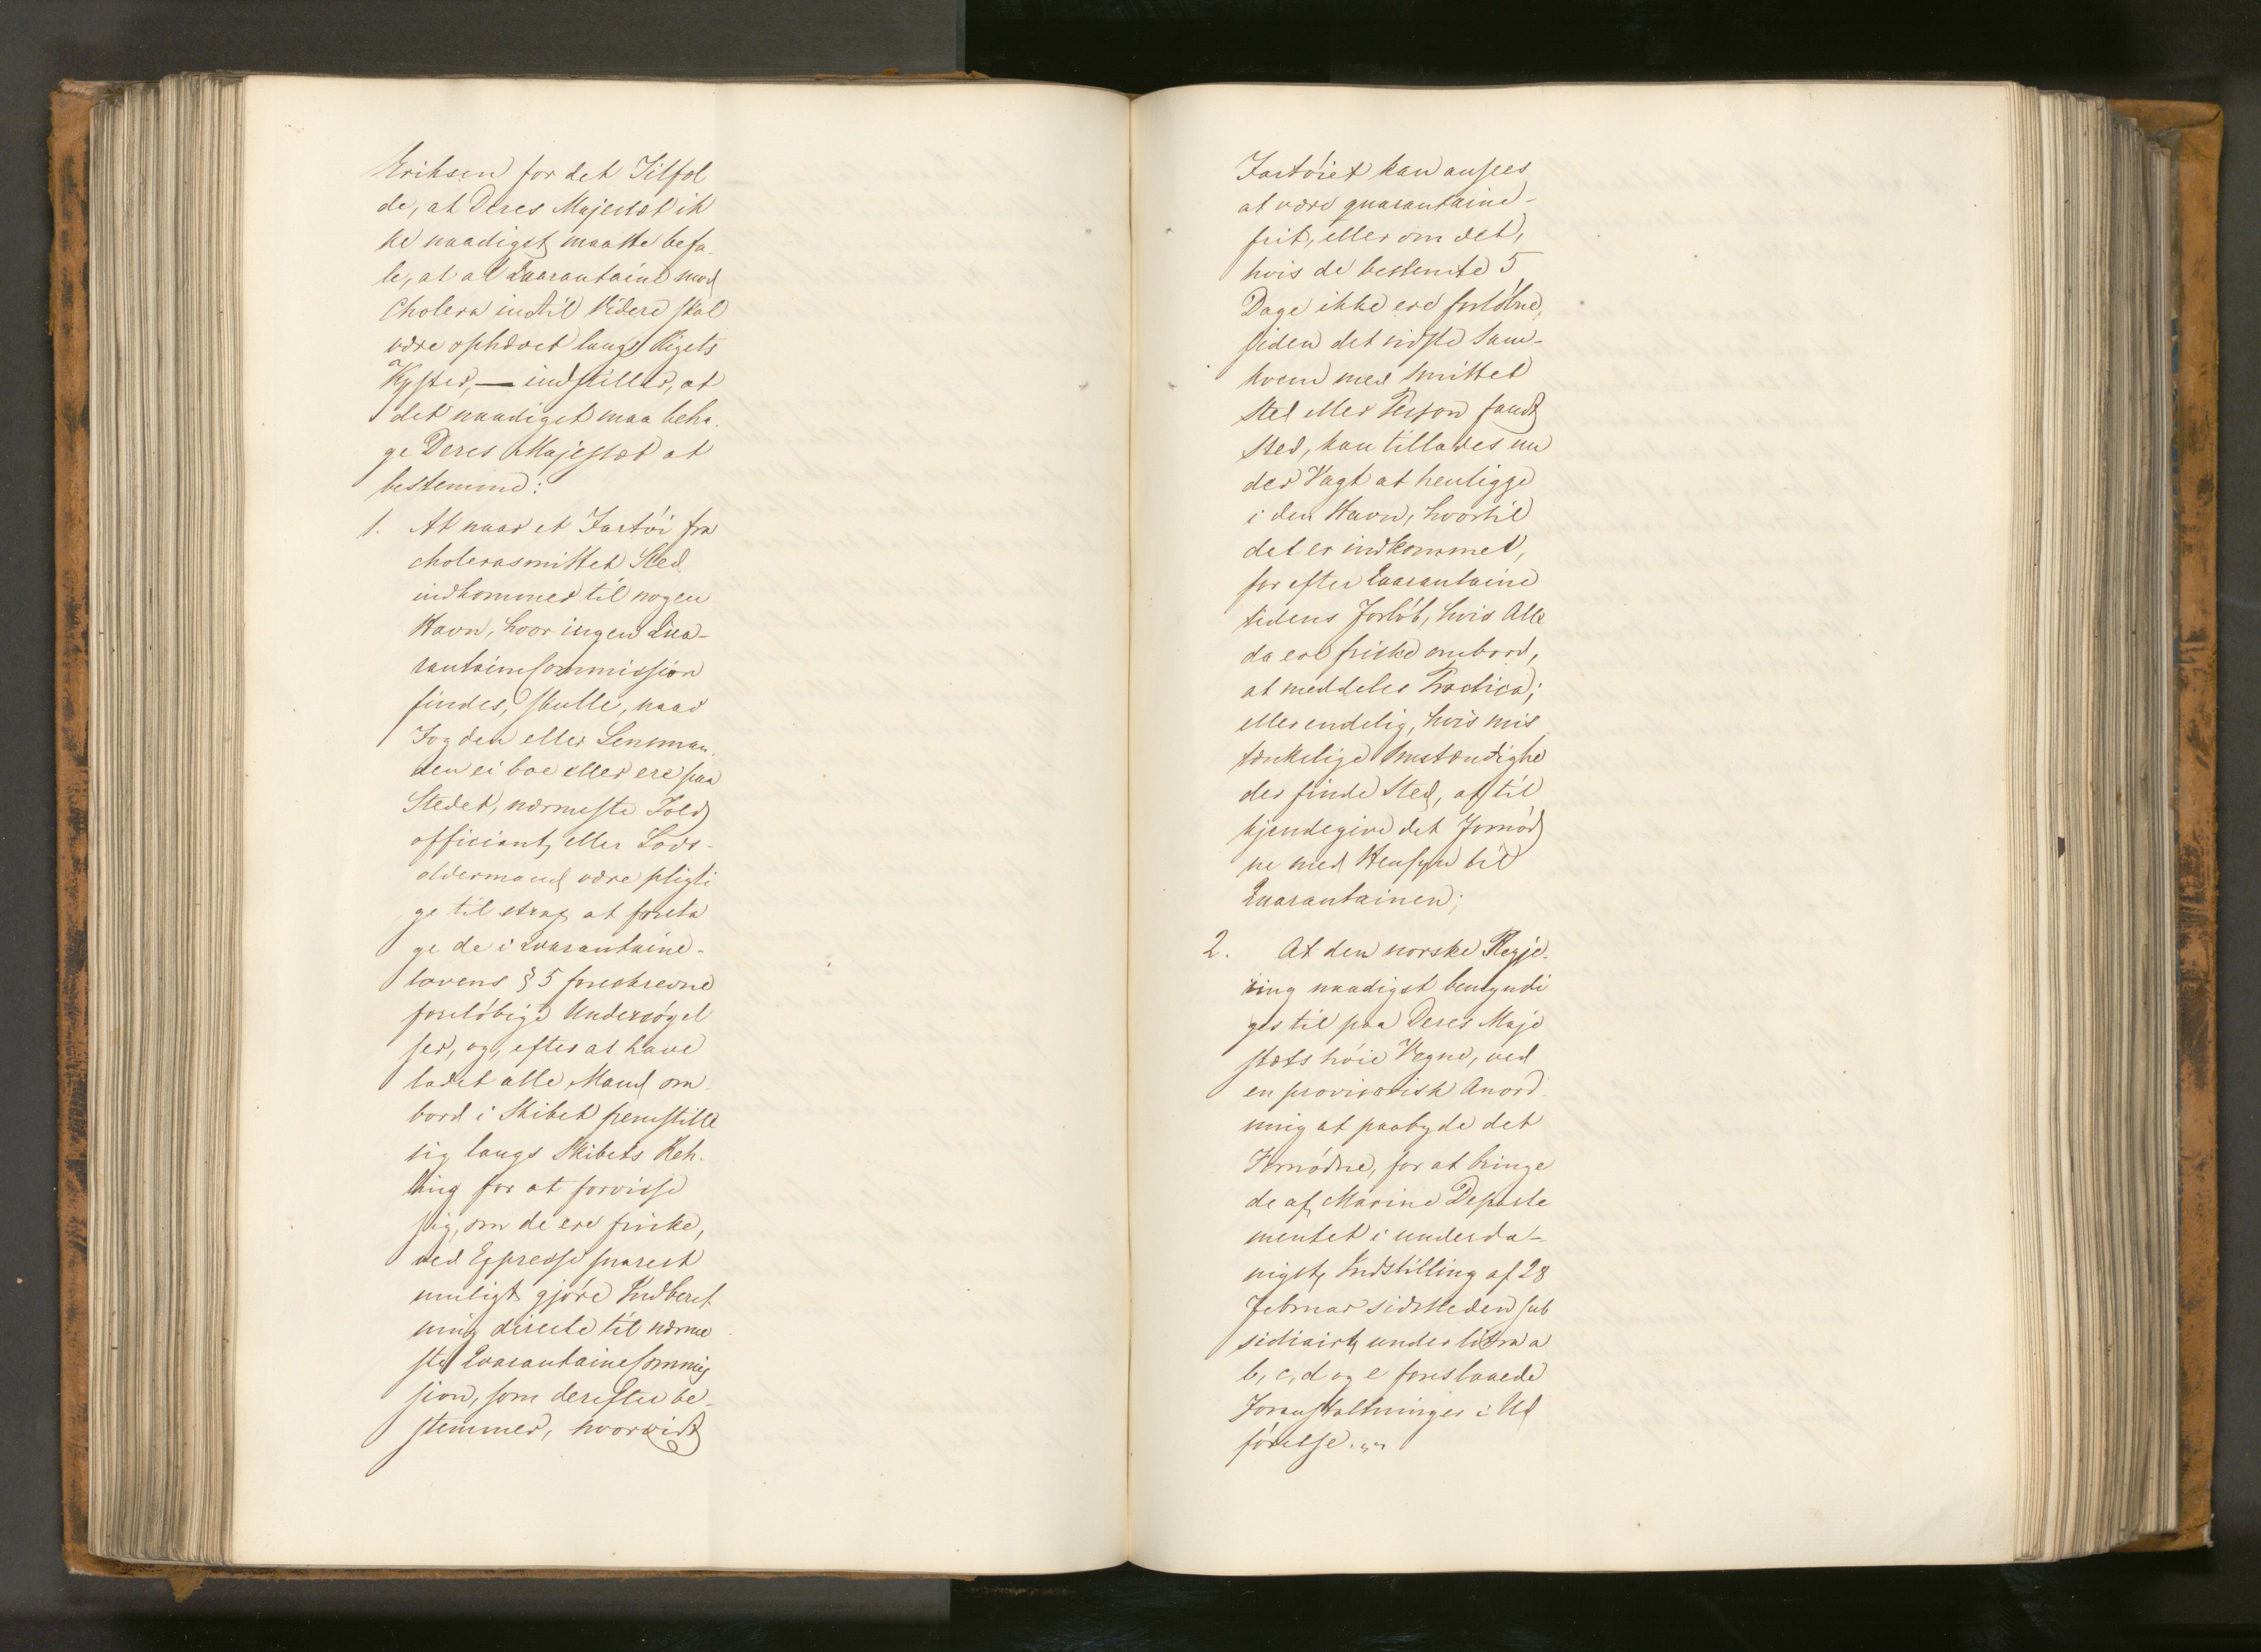 Eriksen for det Tilfæl
de, at Deres Majestæt ik
ke naadigst maatte befa
le, at al Quarantaine mod
Cholera indtil Videre skal
være ophævet langs Rigets
Kyster, — indstiller, at
det naadigst maa beha-
ge Deres Majestæt at
bestemme:
1. At naar et Fartöi fra
cholerasmittet Sted
indkommer til nogen
Havn, hvor ingen Qua-
rantaineCommission
findes, skulle, naar
Fogden eller Lensman-
den ei boe eller ere paa
Stedet, nærmeste Told
officiant eller Lods-
oldermand være pligti
ge til strax at foreta
ge de i Quarantaine-
lovens § 5 foreskrevne
forelöbige Undersögel
ser, og, efter at have
ladet alle Mand om-
bord i Skibet fremstille
sig langs Skibets Reh-
ling for at forvisse
sig, om de ere friske,
ved Expresse snarest
muligt gjöre Indberet
ning directe til nærme
ste QuarantaineCommis
sion, som derefter be-
stemmer, hvorvidt
Fartöiet kan ansees
at være quarantaine-
frit, eller om det,
hvis de bestemte 5
Dage ikke ere forlöbne,
siden det sidste Sam-
kvem med smittet
Sted eller Person fandt
Sted, kan tillades un
der Vagt at henligge
i den Havn, hvortil
det er indkommet,
for efter Quarantaine
tidens Forlöb, hvis Alle
da ere friske ombord,
at meddeles Practica;
eller endelig, hvis mis
tænkelige Omstændighe
der finde Sted, at til
kjendegive det Fornöd
ne med Hensyn til
Quarantainen;
2. At den norske Regje-
ring naadigst bemyndi
ges til paa Deres Maje
stæts höie Vegne, ved
en provisorisk Anord-
ning at paabyde det
Fornödne, for at bringe
de af Marine Departe
mentet i underda-
nigst Indstilling af 28
Februar sidstleden sub
sidiairt under litra a
b, c, d og e foreslaaede
Foranstaltninger i Ud
förelse.